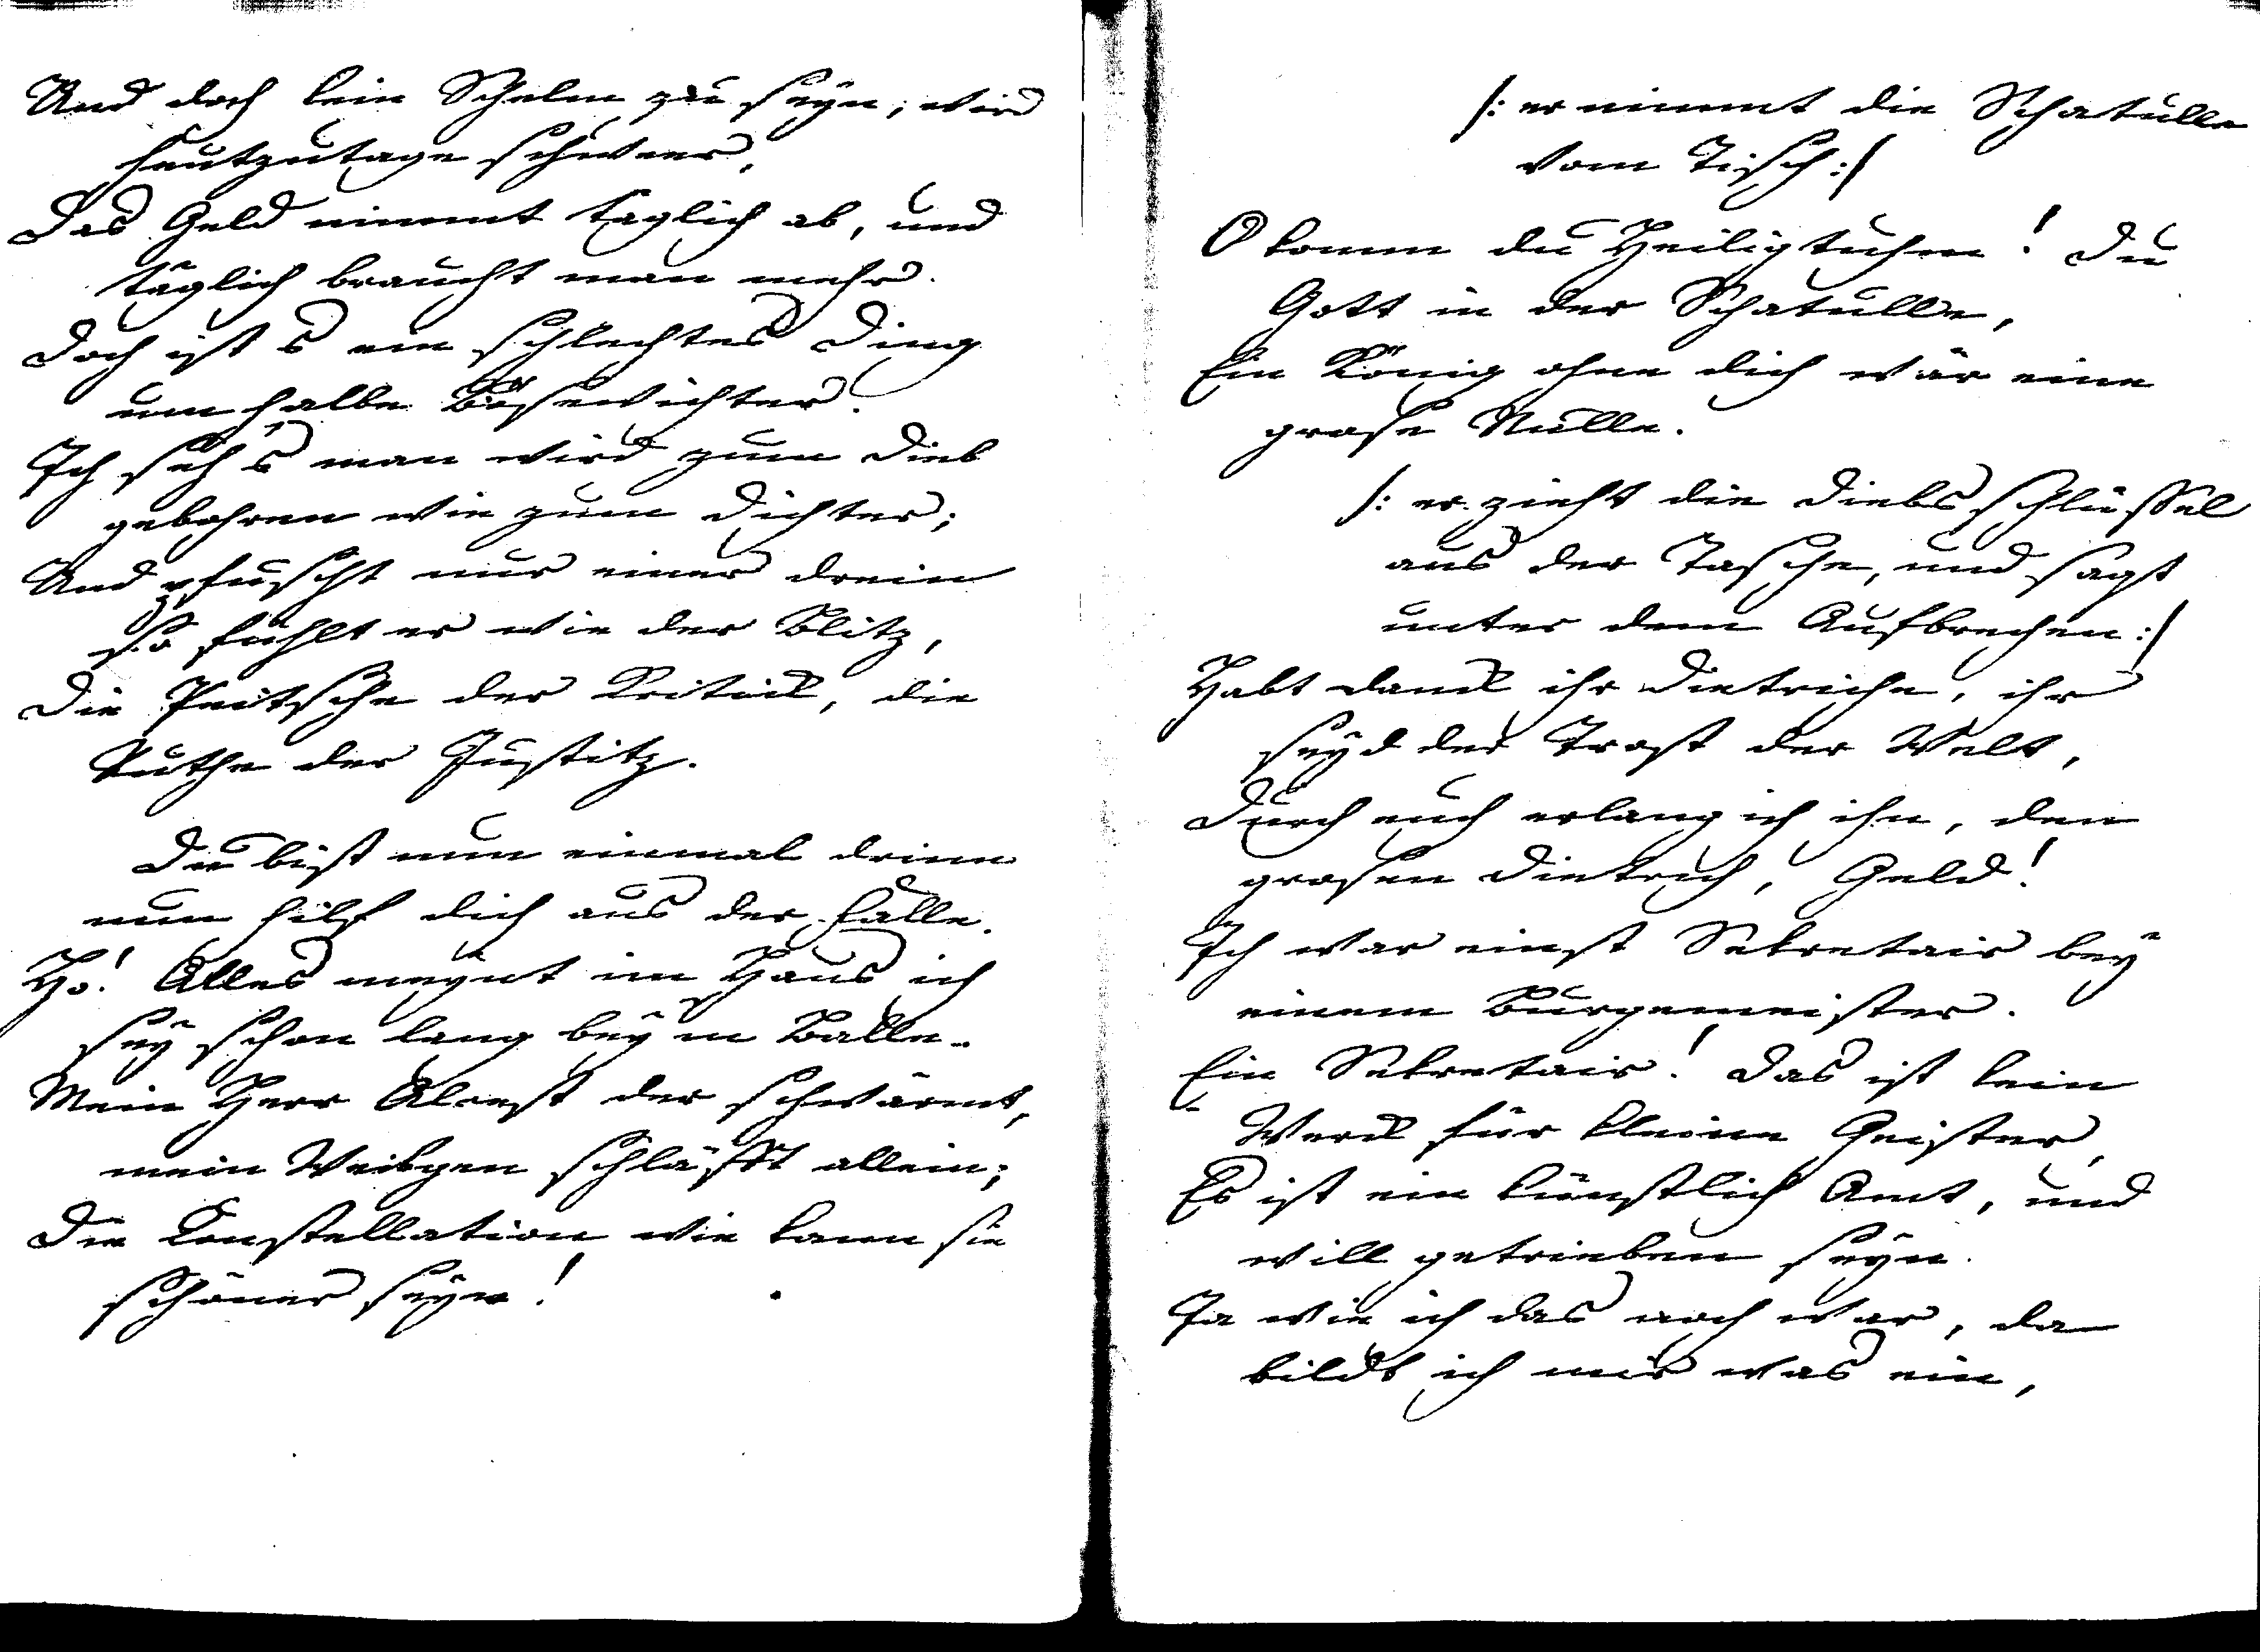 Und doch kein Schelm zu seyn, wird
heutzutage schweer.
Das Geld nimmt täglich ab, und
täglich braucht man mehr.
Doch ist s ein schlechtes Ding
um halbe Bösewichter.
Ich seh's man wird zum Dieb
gebohren wie zum Dichter;
Und pfuscht nur einer drein
so fühlt er wie der Blitz,
Die Peitsche der Kritick, die
Ruthe der Justitz.
Du bist nun einmal drinn
nun hilf dich aus der Falle.
Ho! Alles meynt im Haus ich
sey schon lang bey m Balle.
Mein Herr Alcest der schwärmt,
mein Weibgen schläfft allein;
Die Constellation wie kann sie
schöner seyn!
/: er nimmt die Schatulle
vom Tisch :/
O komm du Heiligtuhm! Du
Gott in der Schatulle,
Ein König ohne dich wär eine
grose Nulle.
/: er zieht die Diebsschlüssel
aus der Tasche, und sagt
unter dem Aufbrechen :/
Habt danck ihr Dietriche, ihr
seyd der Trost der Welt,
Durch euch erlang ich ihn, den
grosen Dietrich, Geld!
Ich war einst Sekretair bey
einem Burgemeister.
Ein Sekretair! Das ist kein
Werck für kleine Geister,
Es ist ein künstlich Amt, und
will getrieben seyn.
Ja wie ich das noch war, da
bildt ich mir was ein,